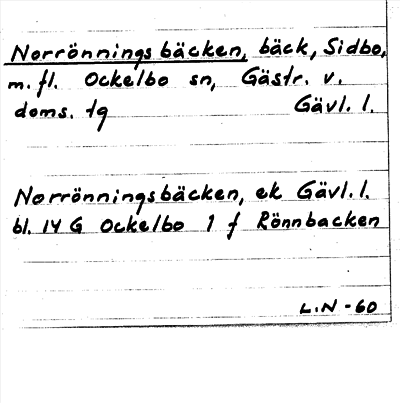 Norrönningsbäcken, bäck, Sidbo,
m. fl. Ockelbo sn, Gästr. v.
doms. tg Gävl. l.
Norrönningsbäcken, ek Gävl. l.
bl. 14 G Ockelbo 1 f Rönnbacken
L.N -60